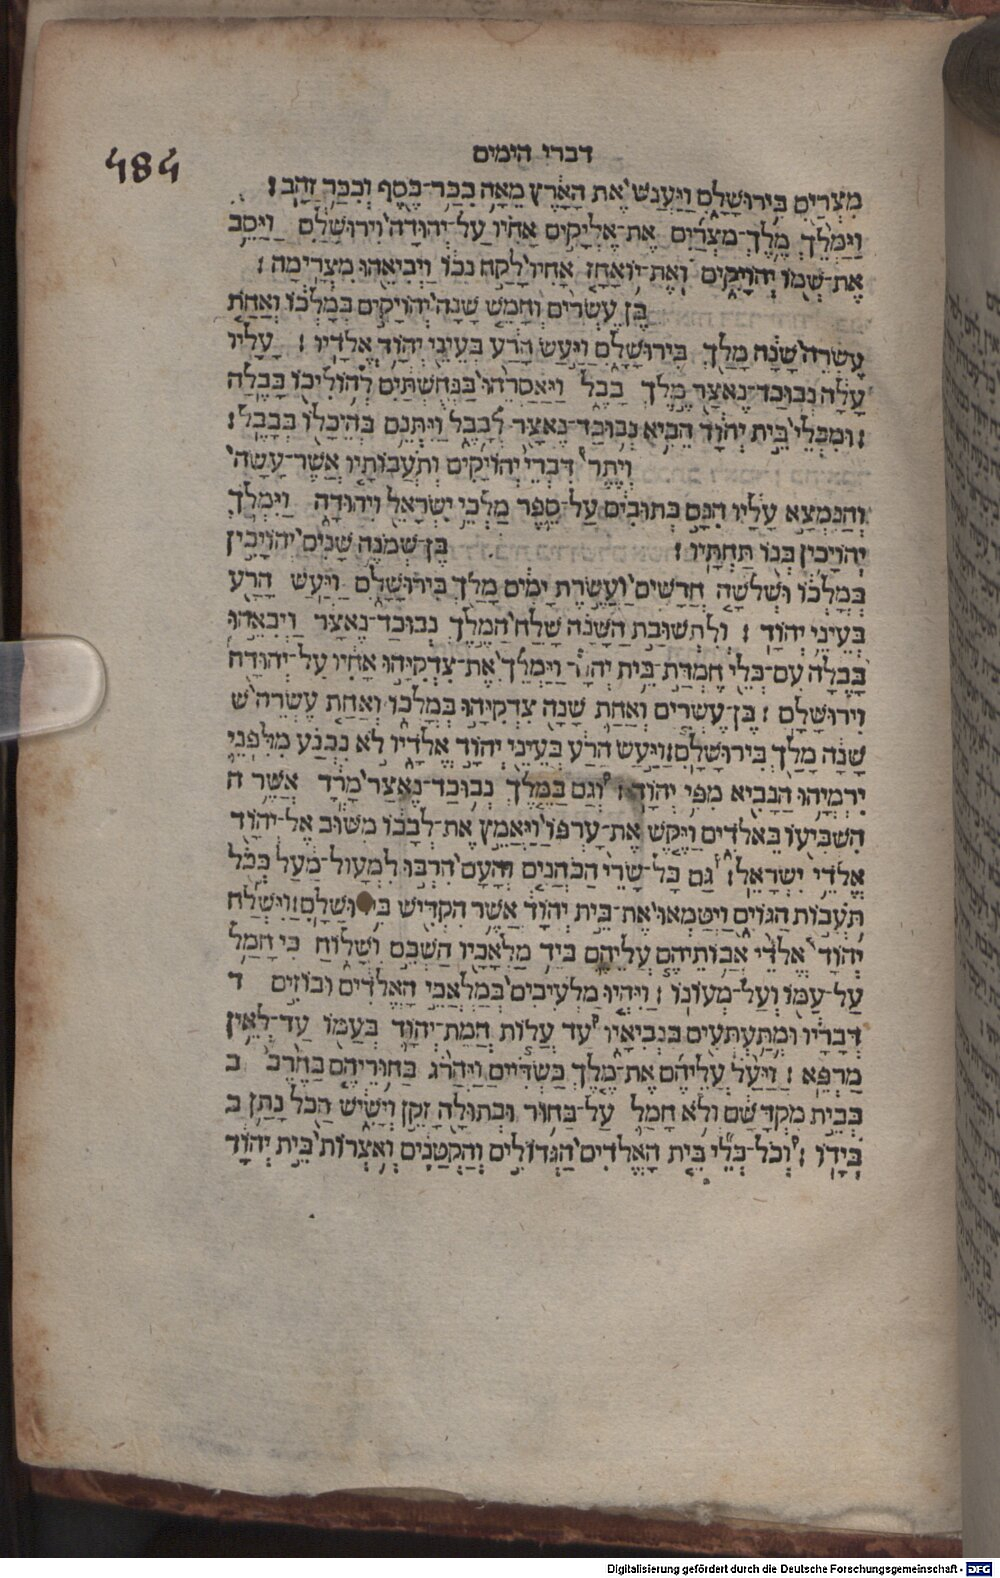 דברי הימים
484
מִצְרַיִם בִּירוּשָׁלִָם וַיַּעֲנֹשׁ אֶת הָאָרֶץ מֵאָה כִכַּר־כֶּסֶף וְכִכַּר זָהָב׃
וַיַּמְלֵךְ מֶלֶךְ־מִצְרַיִם אֶת־אֶלְיָקִים אָחִיו עַל־יְהוּדָה וִירוּשָׁלִַם וַיַּסֵּב
אֶת־שְׁמוֹ יְהוֹיָקִים וְאֶת־יוֹאָחָז אָחִיו לָקַח נְכוֹ וַיְבִיאֵהוּ מִצְרָיְמָה׃
בֶּן עֶשְׂרִים וְחָמֵשׁ שָׁנָה יְהוֹיָקִים בְּמָלְכוֹ וְאַחַת
עֶשְׂרֵה שָׁנָה מָלַךְ בִּירוּשָׁלִָם וַיַּעַשׂ הָרַע בְּעֵינֵי יְהוָֹד אֱלֹדָיו׃ עָלָיו
עָלָה נְבוּכַד־נֶאצַּר מֶלֶךְ בָּבֶל וַיַּאַסְרֵהוּ בַּנְחֻשְׁתַּיִם לְהוֹלִיכוֹ בָּבֶלָה
׃וּמִכְּלֵי בֵּית יְהוָֹד הֵבִיא נְבוּכַד־נֶאצַּר לְבָבֶל וַיִּתְּנֵם בְּהֵיכָלוֹ בְּבָבֶל׃
וְיֶתֶר דִּבְרֵי יְהוֹיָקִים וְתֹעֲבוֹתָיו אֲשֶׁר־עָשָׂה
וְהַנִּמְצָא עָלָיו הִנָּם כְּתוּבִים עַל־סֵפֶר מַלְכֵי יִשְׂרָאֵל וִיהוּדָה וַיִּמְלֹךְ
יְהוֹיָכִין בְּנוֹ תַּחְתָּיו׃ בֶּן־שְׁמֹנֶה שָׁנִים יְהוֹיָכִין
בְּמָלְכוֹ וּשְׁלֹשָׁה חֳדָשִׁים וַעֲשֶׂרֶת יָמִים מָלַךְ בִּירוּשָׁלִָם וַיַּעַשׂ הָרַע
בְּעֵינֵי יְהוָֹד׃ וְלִתְשׁוּבַת הַשָּׁנָה שָׁלַח הַמֶּלֶךְ נְבוּכַד־נֶאצַּר וַיְבִאֵהוּ
בָּבֶלָה עִם־כְּלֵי חֶמְדַּת בֵּית וַיַּמְלֵךְ אֶת־צִדְקִיָּהוּ אָחִיו עַל־יְהוּדָה
וִירוּשָׁלִָם׃ בֶּן־עֶשְׂרִים וְאַחַת שָׁנָה צִדְקִיָּהוּ בְמָלְכוֹ וְאַחַת עֶשְׂרֵה ש
שָׁנָה מָלַךְ בִּירוּשָׁלִָם׃וַיַּעַשׂ הָרַע בְּעֵינֵי יְהוָֹד אֱלֹדָיו לֹא נִכְנַע מִלִּפְנֵי
יִרְמְיָהוּ הַנָּבִיא מִפִּי יְהוָֹד׃ וְגַם בַּמֶּלֶךְ נְבוּכַד־נֶאצַּר מָרָד אֲשֶׁר ה
הִשְׁבִּיעוֹ בֵּאלֹדִים וַיֶּקֶשׁ אֶת־עָרְפּוֹ וַיְאַמֵּץ אֶת־לְבָבוֹ מִשּׁוּב אֶל־יְהוָֹד
אֱלֹדֵי יִשְׂרָאֵל׃ גַּם כָּל־שָׂרֵי הַכֹּהֲנִים וְהָעָם הִרְבּוּ לִמְעוֹל־מַעַל כְּכֹל
תֹּעֲבוֹת הַגּוֹיִם וַיְטַמְּאוּ אֶת־בֵּית יְהוָֹד אֲשֶׁר הִקְדִּישׁ וַיִּשְׁלַח
יְהוָֹד אֱלֹדֵי אֲבוֹתֵיהֶם עֲלֵיהֶם בְּיַד מַלְאָכָיו הַשְׁכֵּם וְשָׁלוֹחַ כִּי חָמַל
עַל־עַמּוֹ וְעַל־מְעוֹנוֹ׃ וַיִּהְיוּ מַלְעִיבִים בְּמַלְאֲכֵי הָאֱלֹדִים וּבוֹזִים ד
דְּבָרָיו וּמִתַּעְתְּעִים בִּנְבִיאָיו עַד עֲלוֹת חֲמַת־יְהוָֹד בְּעַמּוֹ עַד־לְאֵין
מַרְפֵּא׃ וַיַּעַל עֲלֵיהֶם אֶת־מֶלֶךְ כַּשְׂדִּיים וַיַּהֲרֹג בַּחוּרֵיהֶם בַּחֶרֶב ב
בְּבֵית מִקְדָּשָׁם וְלֹא חָמַל עַל־בָּחוּר וּבְתוּלָה זָקֵן וְיָשֵׁישׁ הַכֹּל נָתַן ב
בְּיָדוֹ׃ וְכֹל־כְּלֵי בֵּית הָאֱלֹדִים הַגְּדוֹלִים וְהַקְּטַנִּים וְאֹצְרוֹת בֵּית יְהוָֹד
Digitalisierung gefördert durch die Deutsche Forschungsgemeinschaft - DFG